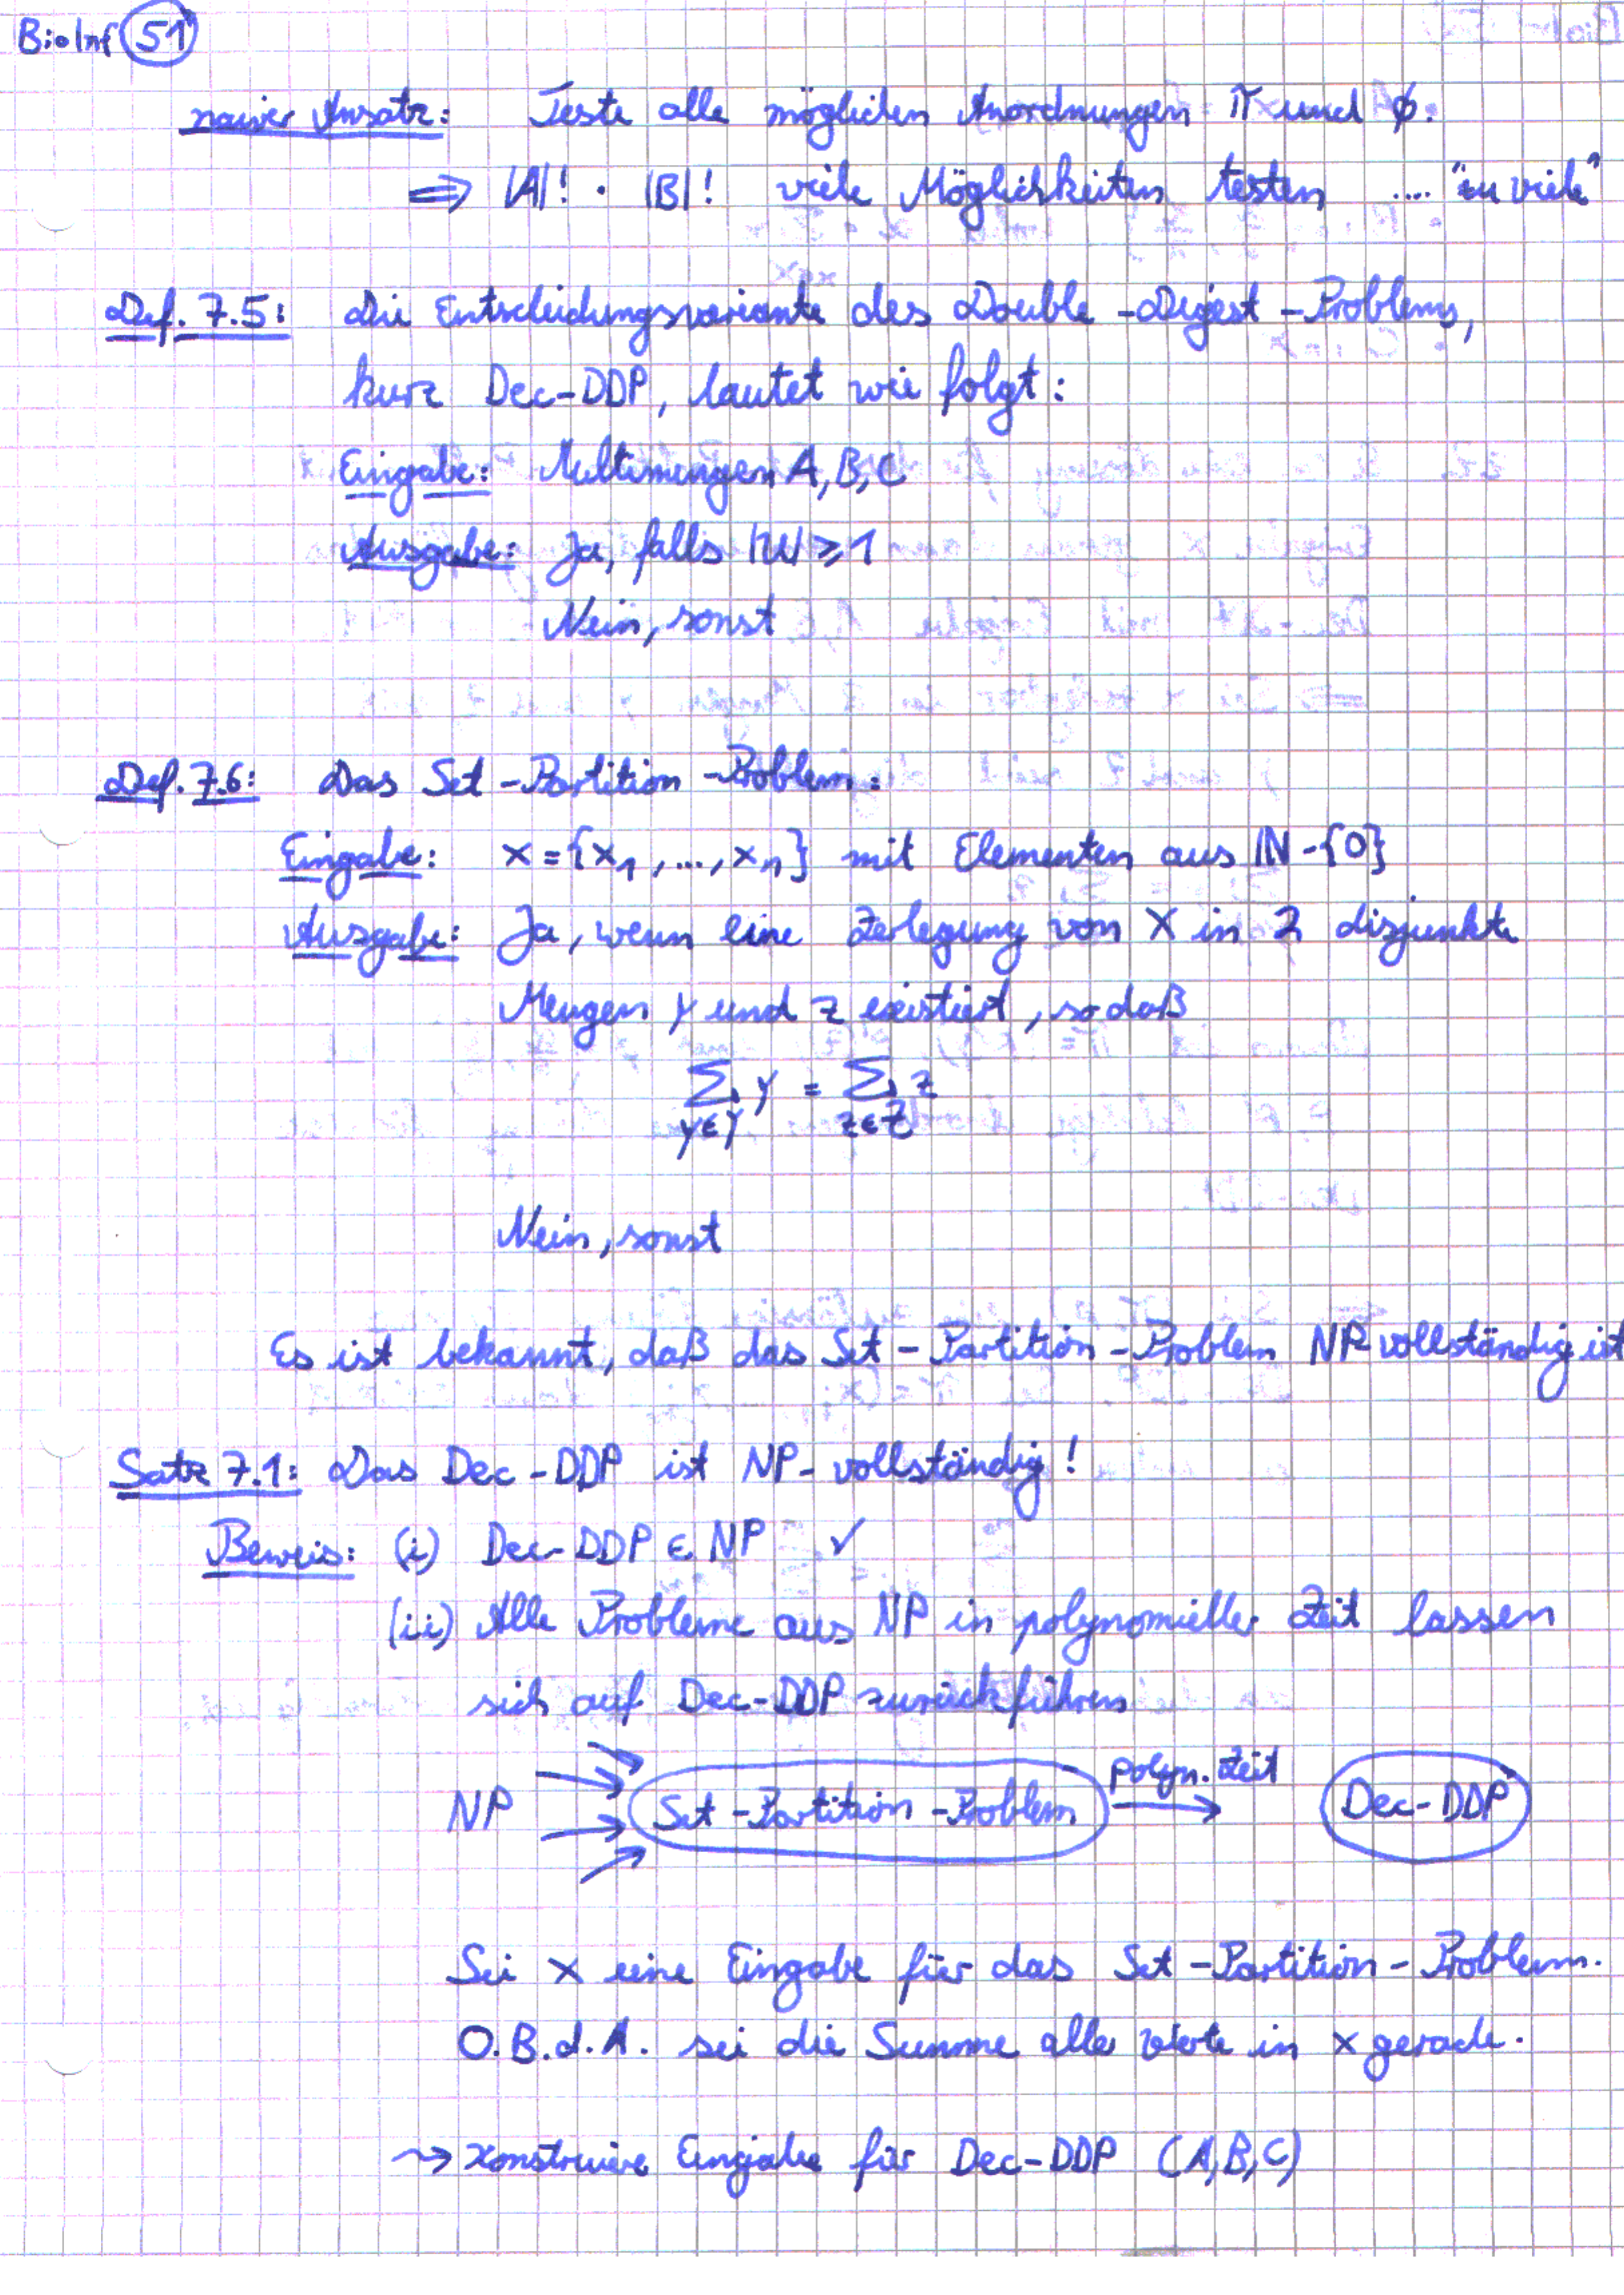 BioInf 51
naiver Ansatz: Teste alle möglichen Anordnungen π und φ.
⇒ |A|! · |B|! viele Möglichkeiten testen .... "zu viele"
Def. 7.5: Die Entscheidungsvariante des Double-Digest-Problems,
kurz Dec-DDP, lautet wie folgt:
Eingabe: Multimengen A,B,C
Ausgabe: Ja, falls |U| ≥ 1
Nein, sonst
Def. 7.6: Das Set-Partition-Problem:
Eingabe: X = {x₁,...,xₙ} mit Elementen aus ℕ-{0}
Ausgabe: Ja, wenn eine Zerlegung von X in 2 disjunkte
Mengen Y und Z existiert, so daß
∑_{y∈Y} y = ∑_{z∈Z} z
Nein, sonst
Es ist bekannt, daß das Set-Partition-Problem NP-vollständig ist
Satz 7.1: Das Dec-DDP ist NP-vollständig!
Beweis: (i) Dec-DDP ∈ NP ✓
(ii) Alle Probleme aus NP in polynomieller Zeit lassen
sich auf Dec-DDP zurückführen
NP Set-Partition-Problem polyn. Zeit Dec-DDP
Sei X eine Eingabe für das Set-Partition-Problem.
O.B.d.A. sei die Summe aller Werte in X gerade.
⇝ konstruiere Eingabe für Dec-DDP (A,B,C)